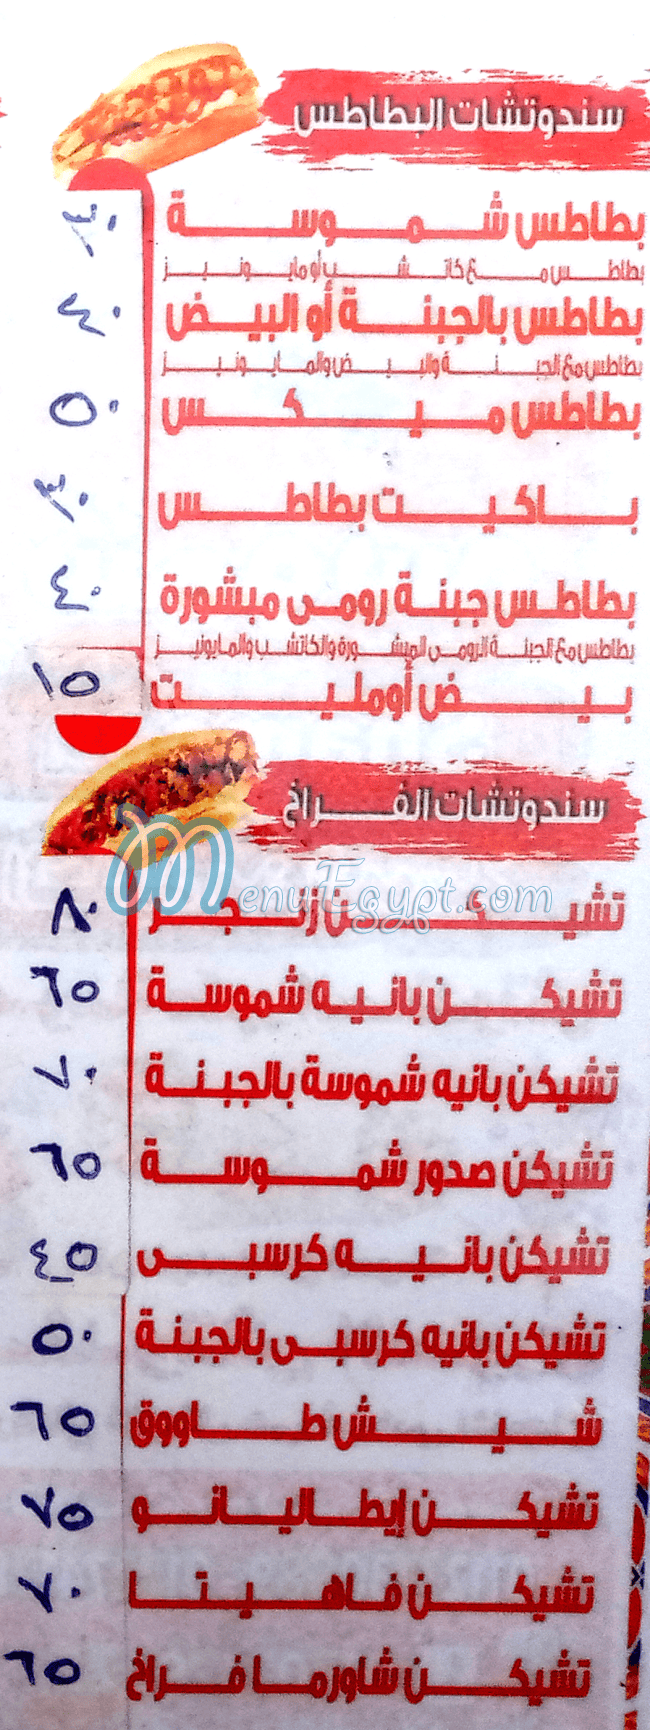 سندوتشات البطاطس
بطاطس شموسة ٣٠
بطاطس مع كاتشب أو مايونيز
بطاطس بالجبنة أو البيض ٤٠
بطاطس مع الجبنة والبيض والمايونيز
بطاطس ميكس ٥٠
باكيت بطاطس ٣٠
بطاطس جبنة رومى مبشورة ٤٠
بطاطس مع الجبنة الرومى المبشورة والكاتشب والمايونيز
بيض أومليت ١٥
سندوتشات الفراخ
MenuEgypt.com
تشيكن زنجر ٨٠
تشيكن بانيه شموسة ٦٥
تشيكن بانيه شموسة بالجبنة ٧٠
تشيكن صدور شموسة ٦٥
تشيكن بانيه كرسبى ٤٥
تشيكن بانيه كرسبى بالجبنة ٥٠
شيش طاووق ٦٥
تشيكن إيطاليانو ٧٥
تشيكن فاهيتا ٧٠
تشيكن شاورما فراخ ٦٥